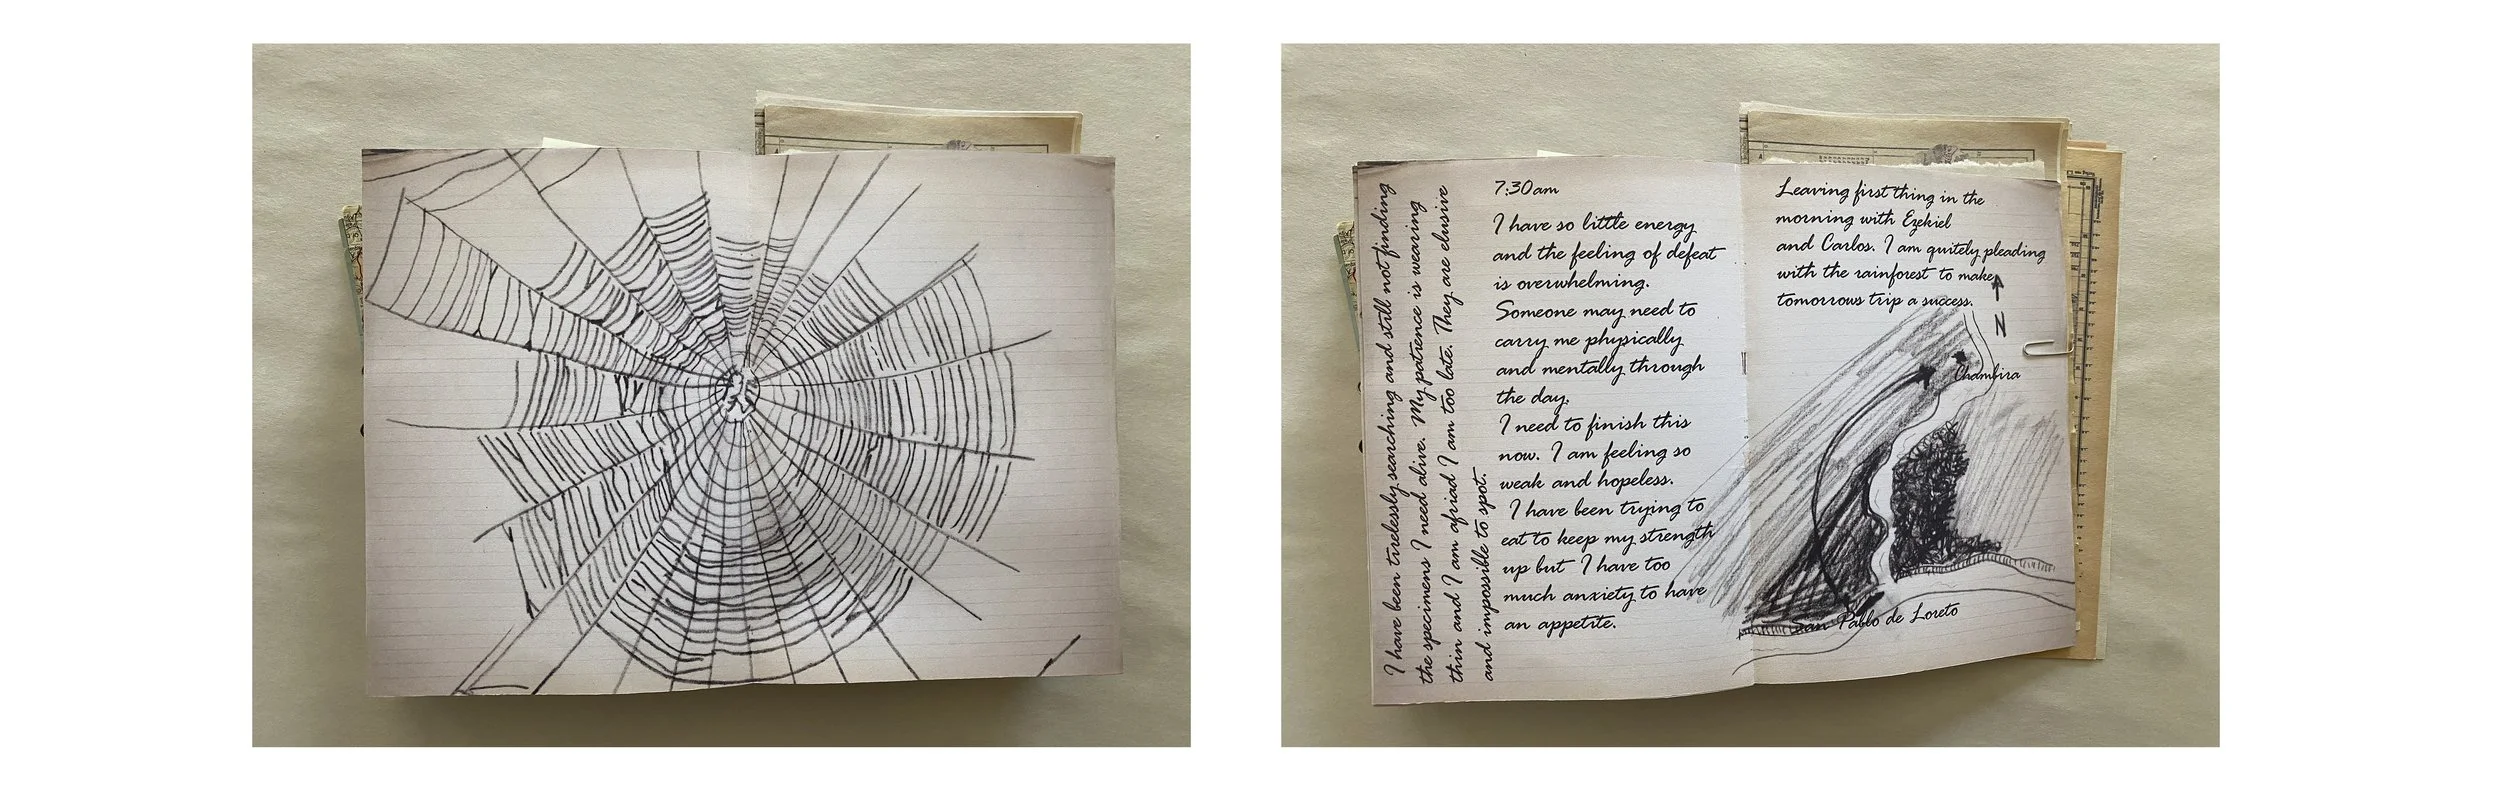 I have been tirelessly searching and still not finding
the specimens I need alive. My patience is wearing
thin and I am afriad I am too late. They are elusive
and impossible to spot.
7:30am
I have so little energy
and the feeling of defeat
is overwhelming.
Someone may need to
carry me physically
and mentally through
the day.
I need to finish this
now. I am feeling so
weak and hopeless.
I have been trying to
eat to keep my strength
up but I have too
much anxiety to have
an appetite.
Leaving first thing in the
morning with Ezekiel
and Carlos. I am quitely pleading
with the rainforest to make
tomorrows trip a success.
N
Chambira
San Pablo de Loreto